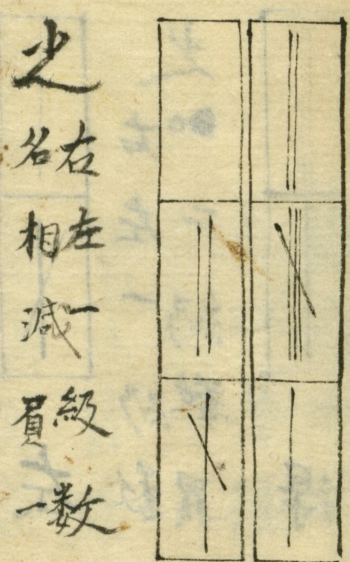 右左一級数
名相減員一